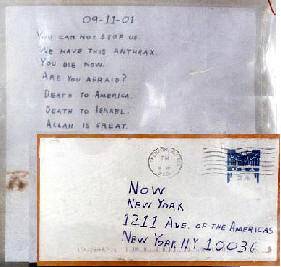 09-11-01
YOU CAN NOT STOP US.
WE HAVE THIS ANTHRAX.
YOU DIE NOW.
ARE YOU AFRAID?
DEATH TO AMERICA.
DEATH TO ISRAEL.
ALLAH IS GREAT.
USA
NOW
NEW YORK
1211 AVE. OF THE AMERICAS
NEW YORK NY 10036